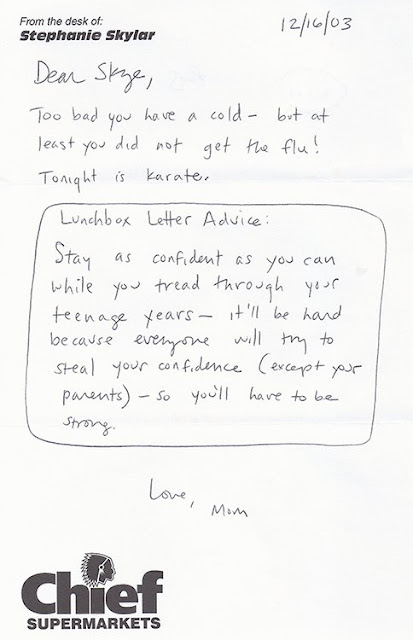 From the desk of:
Stephanie Skylar
12/16/03
Dear Skye,
Too bad you have a cold – but at
least you did not get the flu!
Tonight is karate.
Lunchbox Letter Advice:
Stay as confident as you can
while you tread through your
teenage years – it'll be hard
because everyone will try to
steal your confidence (except your
parents) – so you'll have to be
strong.
Love,
Mom
Chief
SUPERMARKETS